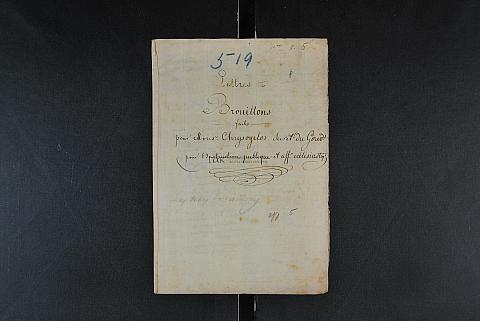 519
Lettres =
Brouillons
faits
pour Monsr Chrysogelos Secrét. du Gouvt
(pour l'Instruction publique et aff. ecclésiasts)
5